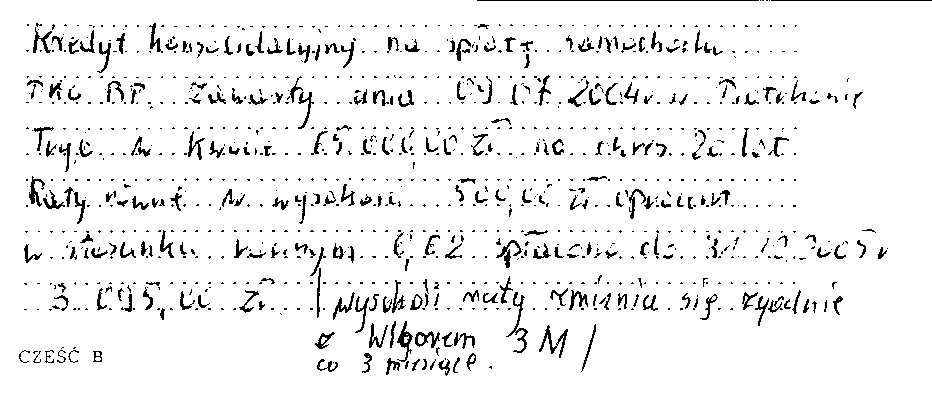 Kredyt konsolidacyjny na spłatę samochodu
PKO BP zawarty dnia 09.07.2004r. w Piotrkowie
Tryb. w kwocie 65.000,00 zł na okres 20 lat
Raty równe w wysokości 500,00 zł oprocent.
w stosunku rocznym 6,02 spłacono do 31.12.2005r
3.095,00 zł /wysokość raty zmienia się zgodnie
z Wiborem 3M/
co 3 miesiące.
CZEŚĆ B